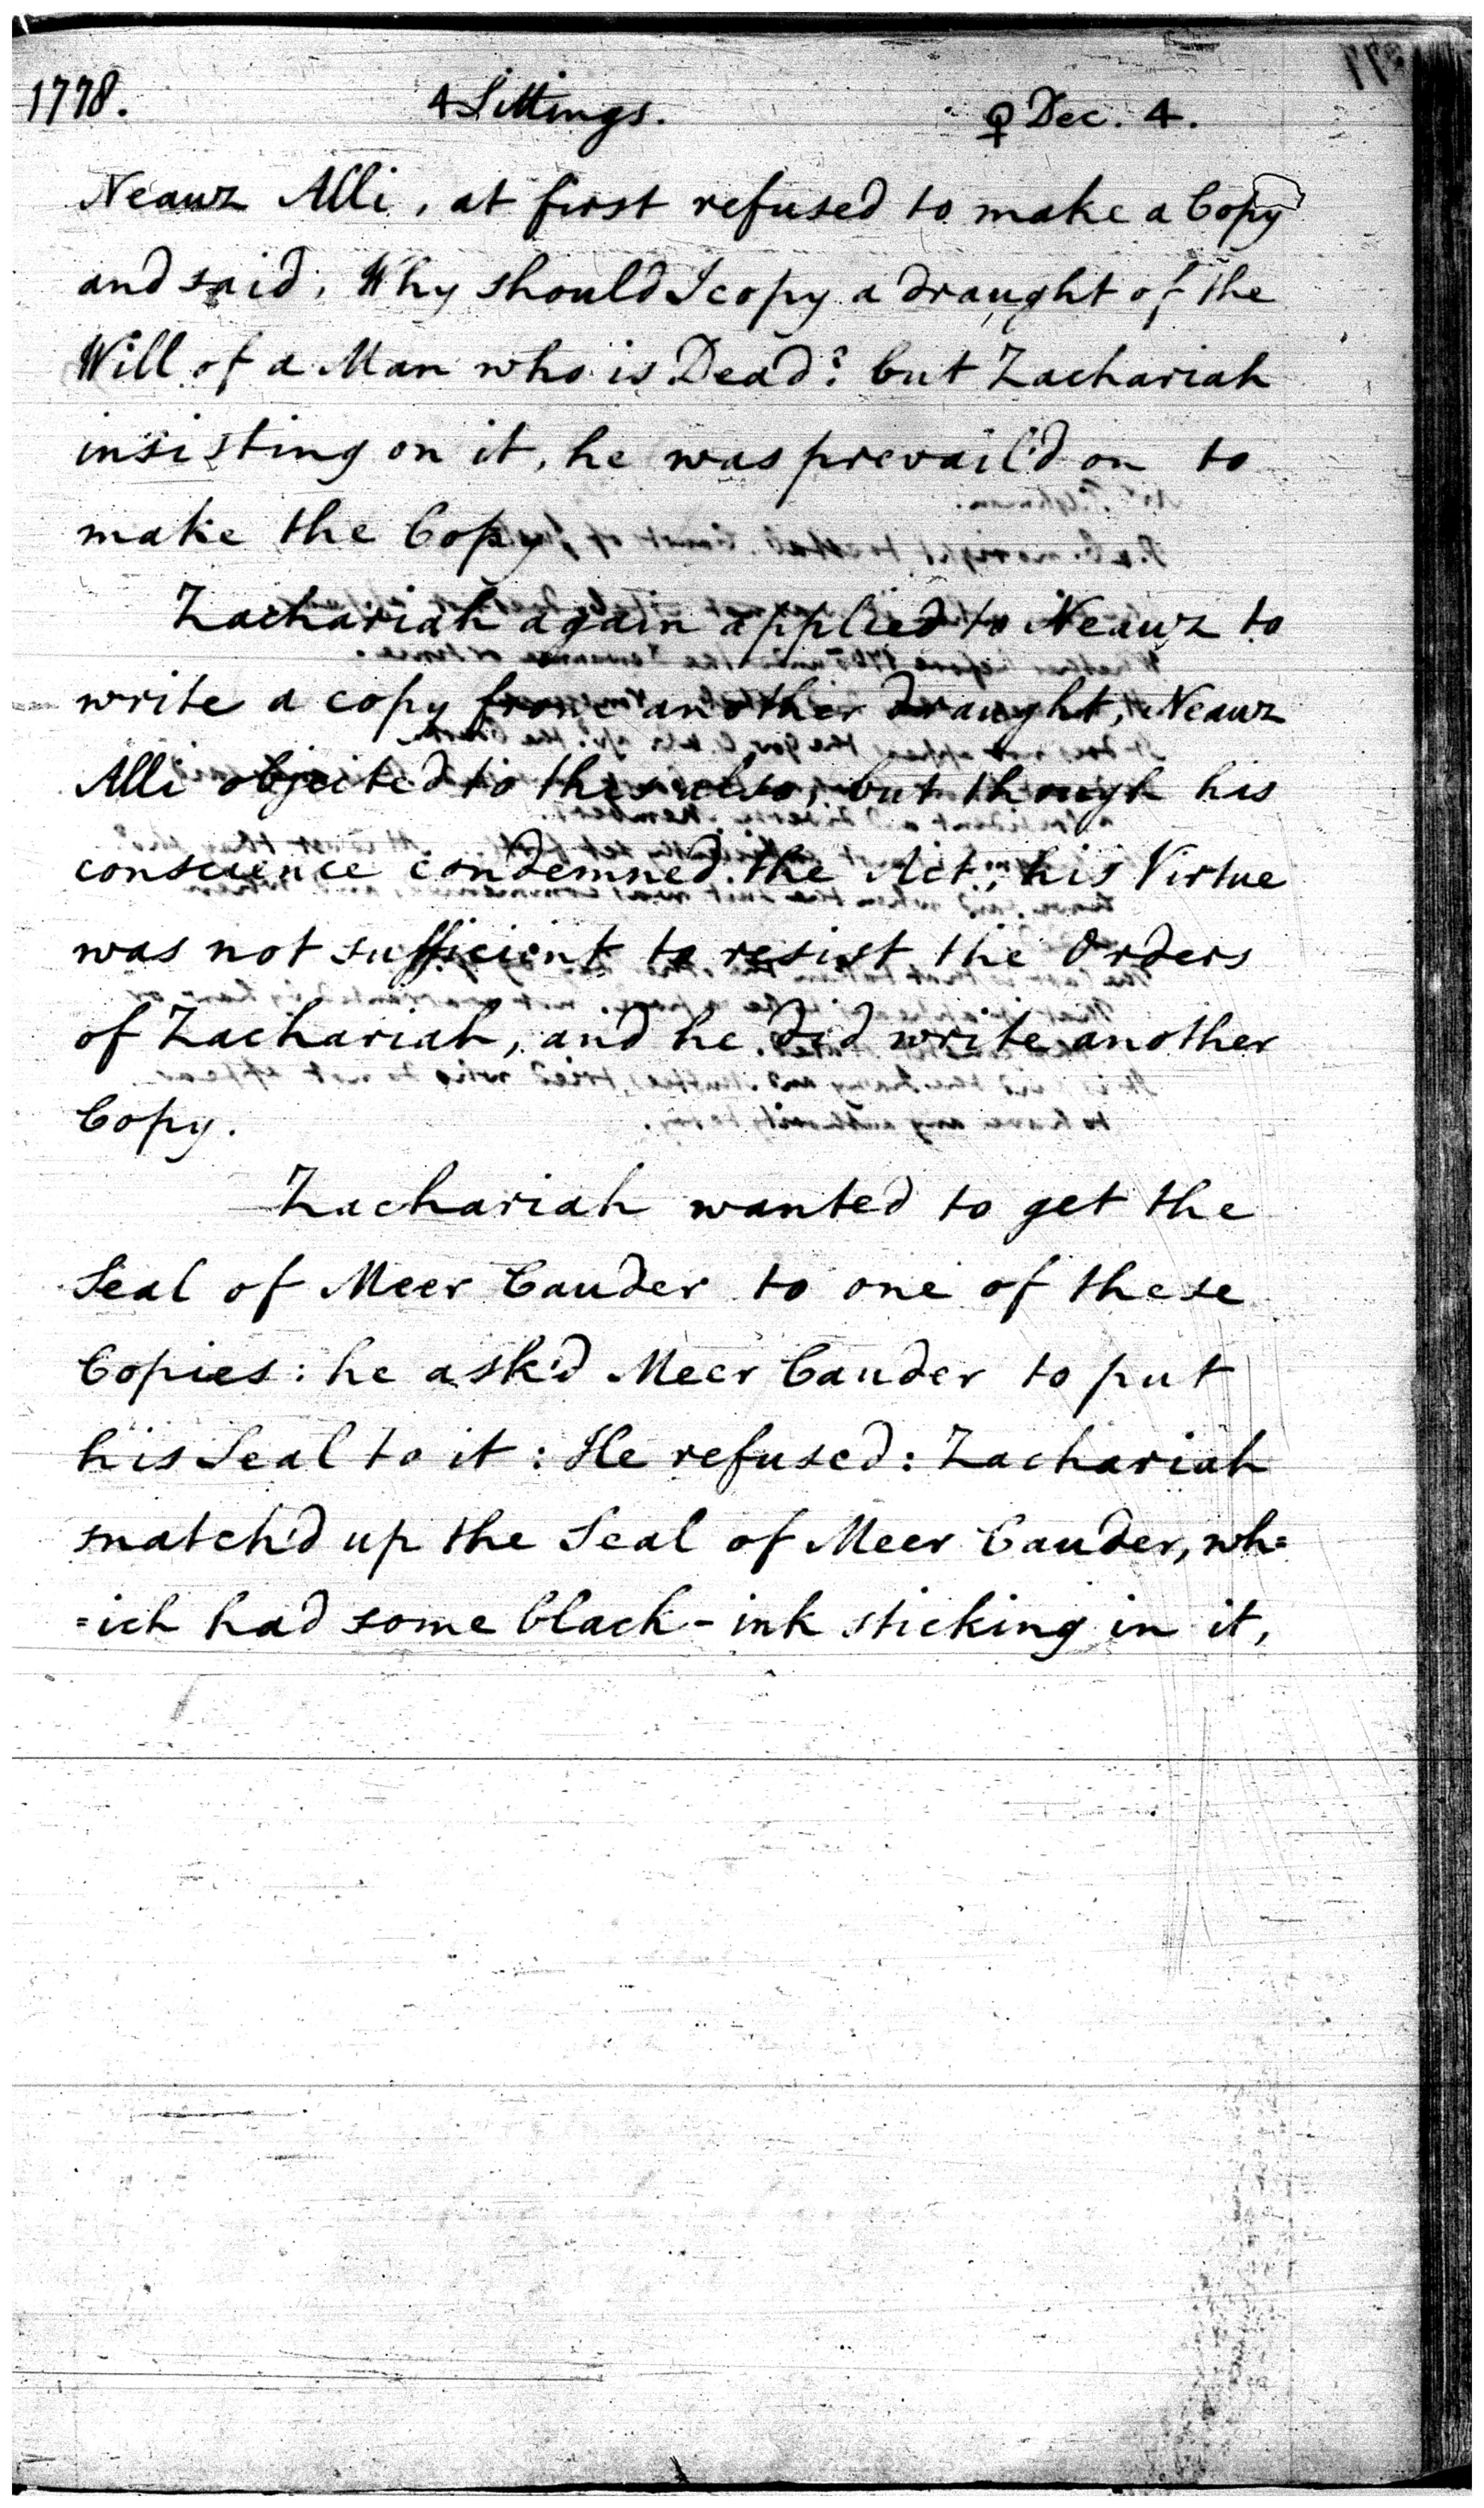 1778. 4 Sittings. ♀ Dec. 4.
Neauz Alli, at first refused to make a Copy
and said, Why should I copy a draught of the
Will of a Man who is Dead? but Zachariah
insisting on it, he was prevail'd on to
make the Copy
Zachariah again applied to Neauz to
write a copy from another draught, Neauz
Alli objected to this also, but though his
conscience condemned the Act, his Virtue
was not sufficient to resist the Orders
of Zachariah, and he did write another
Copy.
Zachariah wanted to get the
Seal of Meer Cauder to one of these
Copies: he ask'd Meer Cauder to put
his Seal to it: He refused: Zachariah
snatch'd up the Seal of Meer Cauder, wh=
=ich had some black-ink sticking in it,